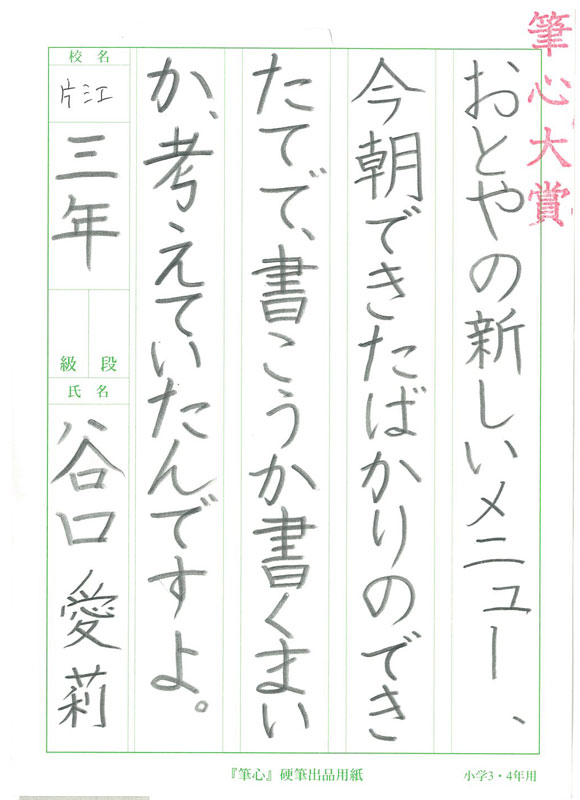 筆心大賞
おとやの新しいメニュー、
今朝できたばかりのでき
たてで、書こうか書くまい
か、考えていたんですよ。
校名
片江
三年
級 段
氏名
谷口 愛莉
『筆心』硬筆出品用紙
小学3・4年用